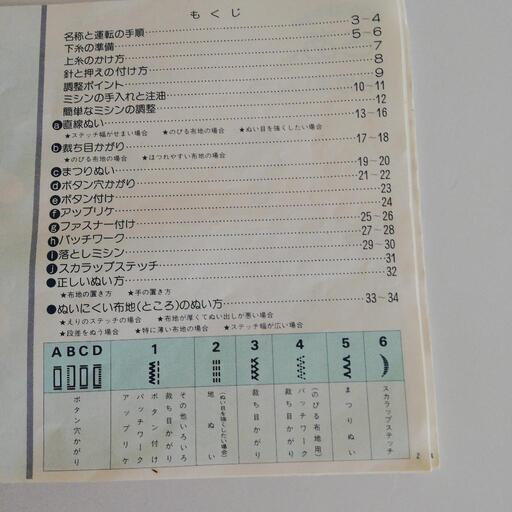 もくじ
名称と運転の手順 3~4
下糸の準備 5~6
上糸のかけ方 7
針と押えの付け方 8
調整ポイント 9
ミシンの手入れと注油 10~11
簡単なミシンの調整 12
ⓐ直線ぬい 13~16
★ステッチ幅がせまい場合 ★のびる布地の場合 ★ぬい目を強くしたい場合
ⓑ裁ち目かがり 17~18
★のびる布地の場合 ★ほつれやすい布地の場合
ⓒまつりぬい 19~20
ⓓボタン穴かがり 21~22
ⓔボタン付け 23
ⓕアップリケ 24
ⓖファスナー付け 25~26
ⓗパッチワーク 27~28
ⓘ落としミシン 29~30
ⓙスカラップステッチ 31
●正しいぬい方 32
★布地の置き方 ★手の置き方
●ぬいにくい布地(ところ)のぬい方 33~34
★えりのステッチの場合 ★布地が厚くてぬい出しが悪い場合
★段差をぬう場合 ★特に薄い布地の場合 ★ステッチ幅が広い場合
A B C D 1 2 3 4 5 6
ボタン穴かがり
その他いろいろ
裁ち目かがり
ボタン付け
パッチワーク
アップリケ
(ぬい目を強くしたい場合)
地ぬい
裁ち目かがり
(のびる布地用)
パッチワーク
裁ち目かがり
まつりぬい
スカラップステッチ